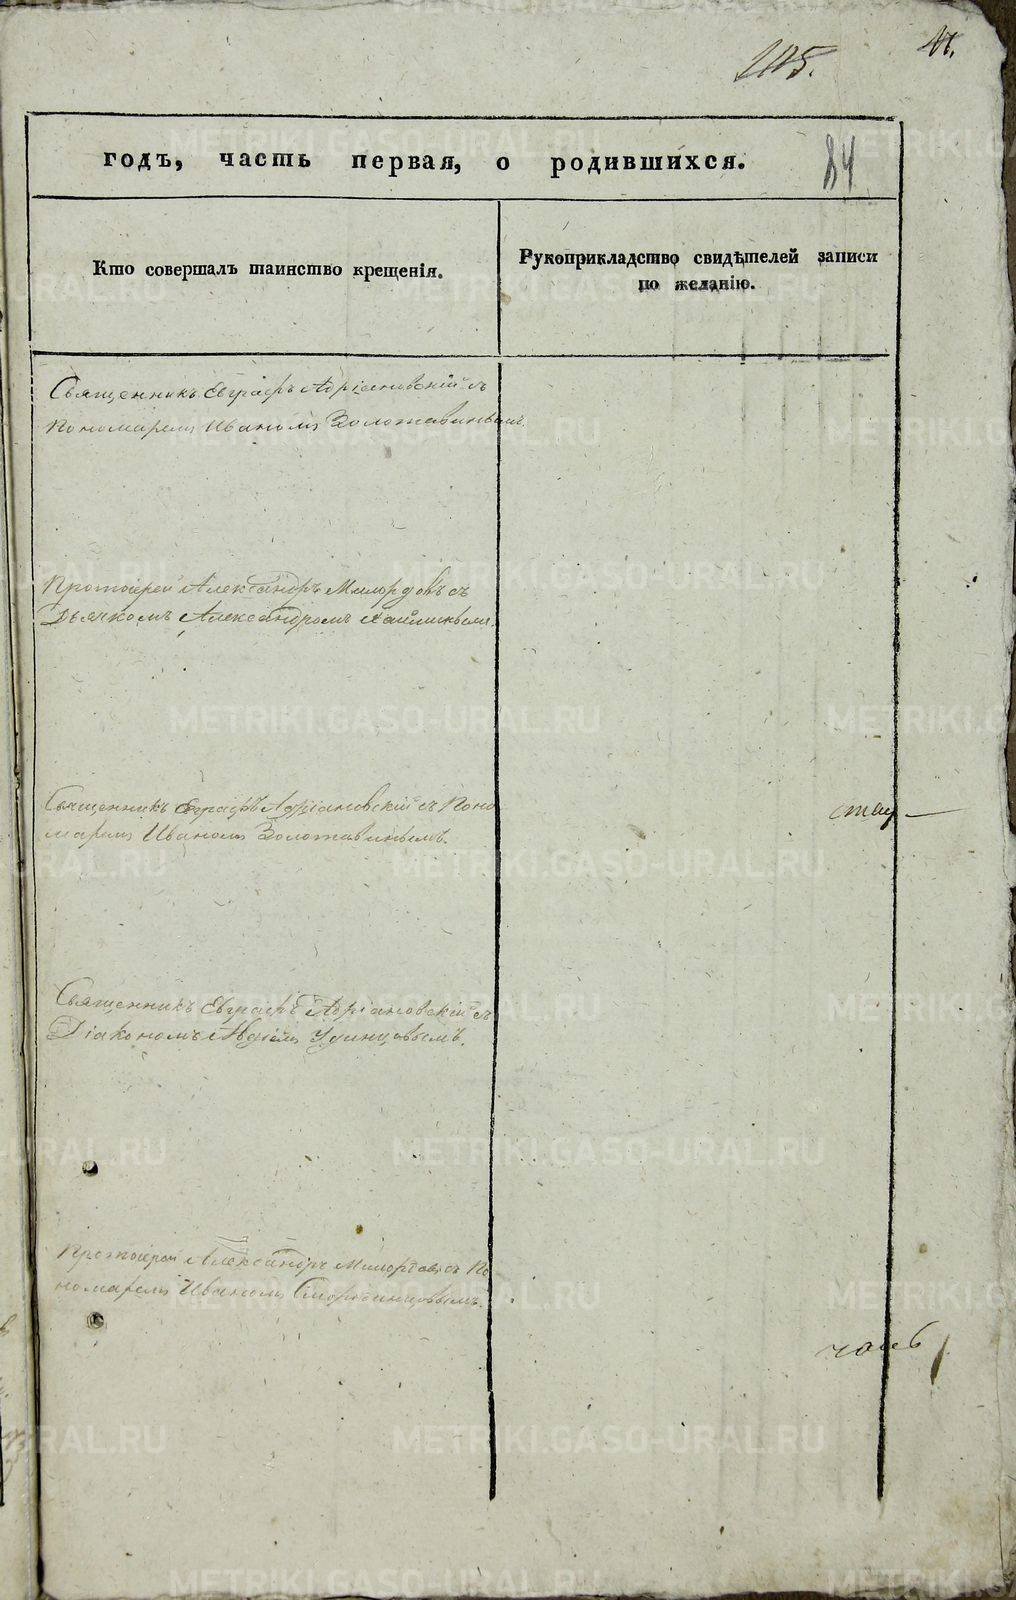 41.
115.
годъ, часть первая, о родившихся.
84
Кто совершалъ таинство крещенія.
Рукоприкладство свидѣтелей записи
по желанію.
Священникъ Евграфъ Адріановскій съ
Пономаремъ Иваномъ Золотавинымъ.
Протоіерей Александръ Милордовъ съ
Дьячкомъ Александромъ
Священникъ Евграфъ Адріановскій съ Поно
маремъ Иваномъ Золотавинымъ.
Священникъ Евграфъ Адріановскій съ
Діакономъ Удинцовымъ.
Протоіерей Александръ Милордовъ съ По
номаремъ Иваномъ Смородинцовымъ.
METRIKI.GASO-URAL.RU